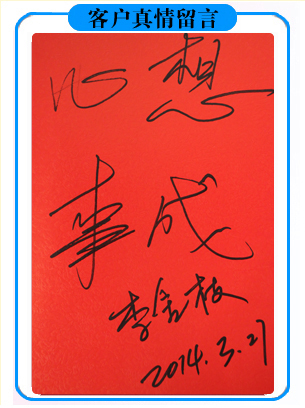 客户真情留言
心想
事成
李金枝
2014.3.27